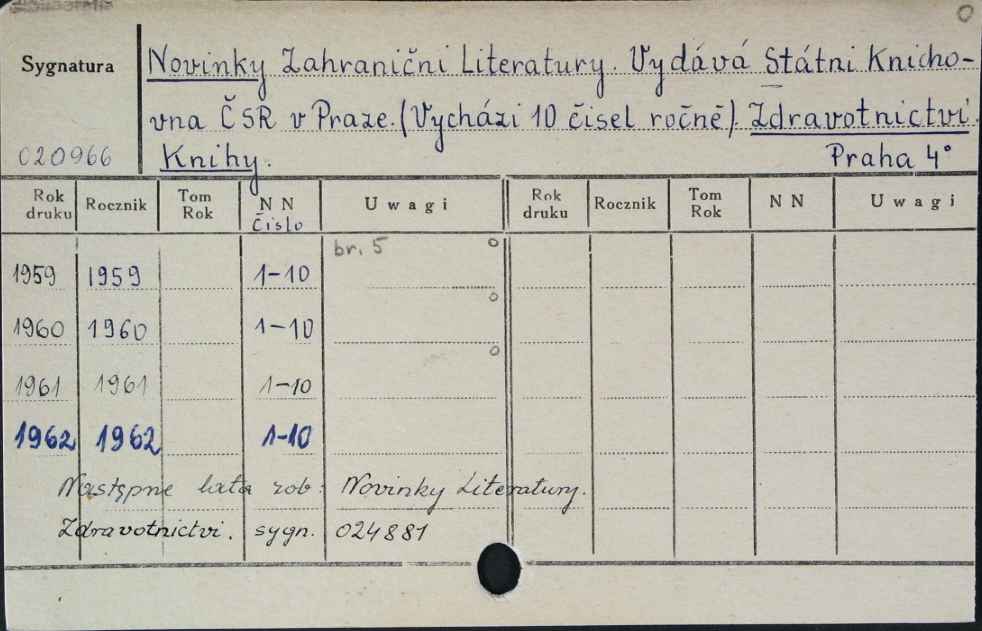 0
Sygnatura
Novinky Zahraniční Literatury. Vydává Státni Knicho-
vna ČSR v Praze. (Vychází 10 čisel ročně) Zdravotnictvi.
020966 Knihy. Praha 4°
Rok druku Rocznik Tom Rok N N Uwagi Rok druku Rocznik Tom Rok N N Uwagi
číslo
br. 5
1959 1959 1-10
1960 1960 1-10
1961 1961 1-10
1962 1962 1-10
Następne lata zob: Novinky Literatury.
Zdravotnictvi. sygn. 024881